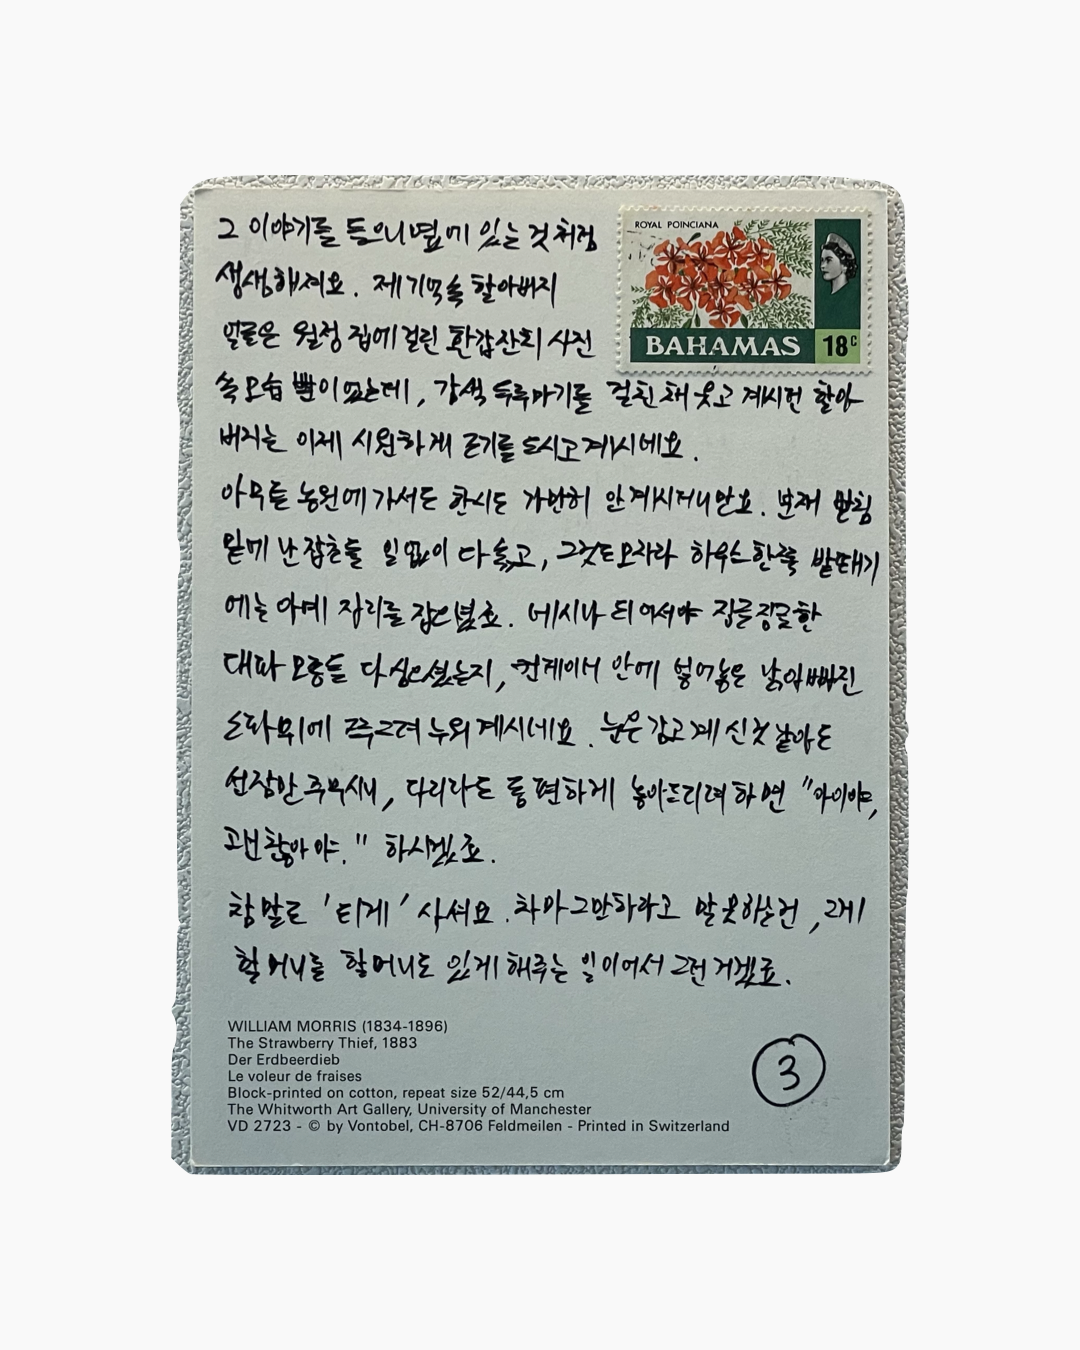 그 이야기를 들으니 옆에 있는 것처럼
ROYAL POINCIANA
생생해져요. 제 기억속 할아버지
얼굴은 월정 집에 걸린 환갑잔치 사진
BAHAMAS 18c
속 모습 뿐이었는데, 갈색 두루마기를 걸친 채 웃고 계시던 할아
버지는 이제 시원하게 트기를 도시고 계시네요.
아무튼 농원에 가서도 한시도 가만히 안 계시자니만요. 받재
밑에 난 잡초들 일없이 다 솎고, 그것도 모자라 하우스 한쪽 밭뙈기
에는 아예 자리를 잡으셨죠. 네시나 되어서야 짐글징글한
대파 모종들 다 심으셨는지, 컨테이너 안에 넣어놓은 낡아빠진
소파 위에 쭈그려 누워 계시네요. 눈은 감고 계신 것 같아도
선잠만 주무시니, 다리라도 좀 편하게 놓아드리려 하면 "아이야,
괜찮아야." 하시겠죠.
참말로 '되게' 사셔요. 차마 그만하라고 말 못하는건, 그게
할머니를 할머니도 있게 해주는 일이어서 그런 거겠죠.
WILLIAM MORRIS (1834-1896)
The Strawberry Thief, 1883
Der Erdbeerdieb
Le voleur de fraises
Block-printed on cotton, repeat size 52/44,5 cm
The Whitworth Art Gallery, University of Manchester
VD 2723 - © by Vontobel, CH-8706 Feldmeilen - Printed in Switzerland
3